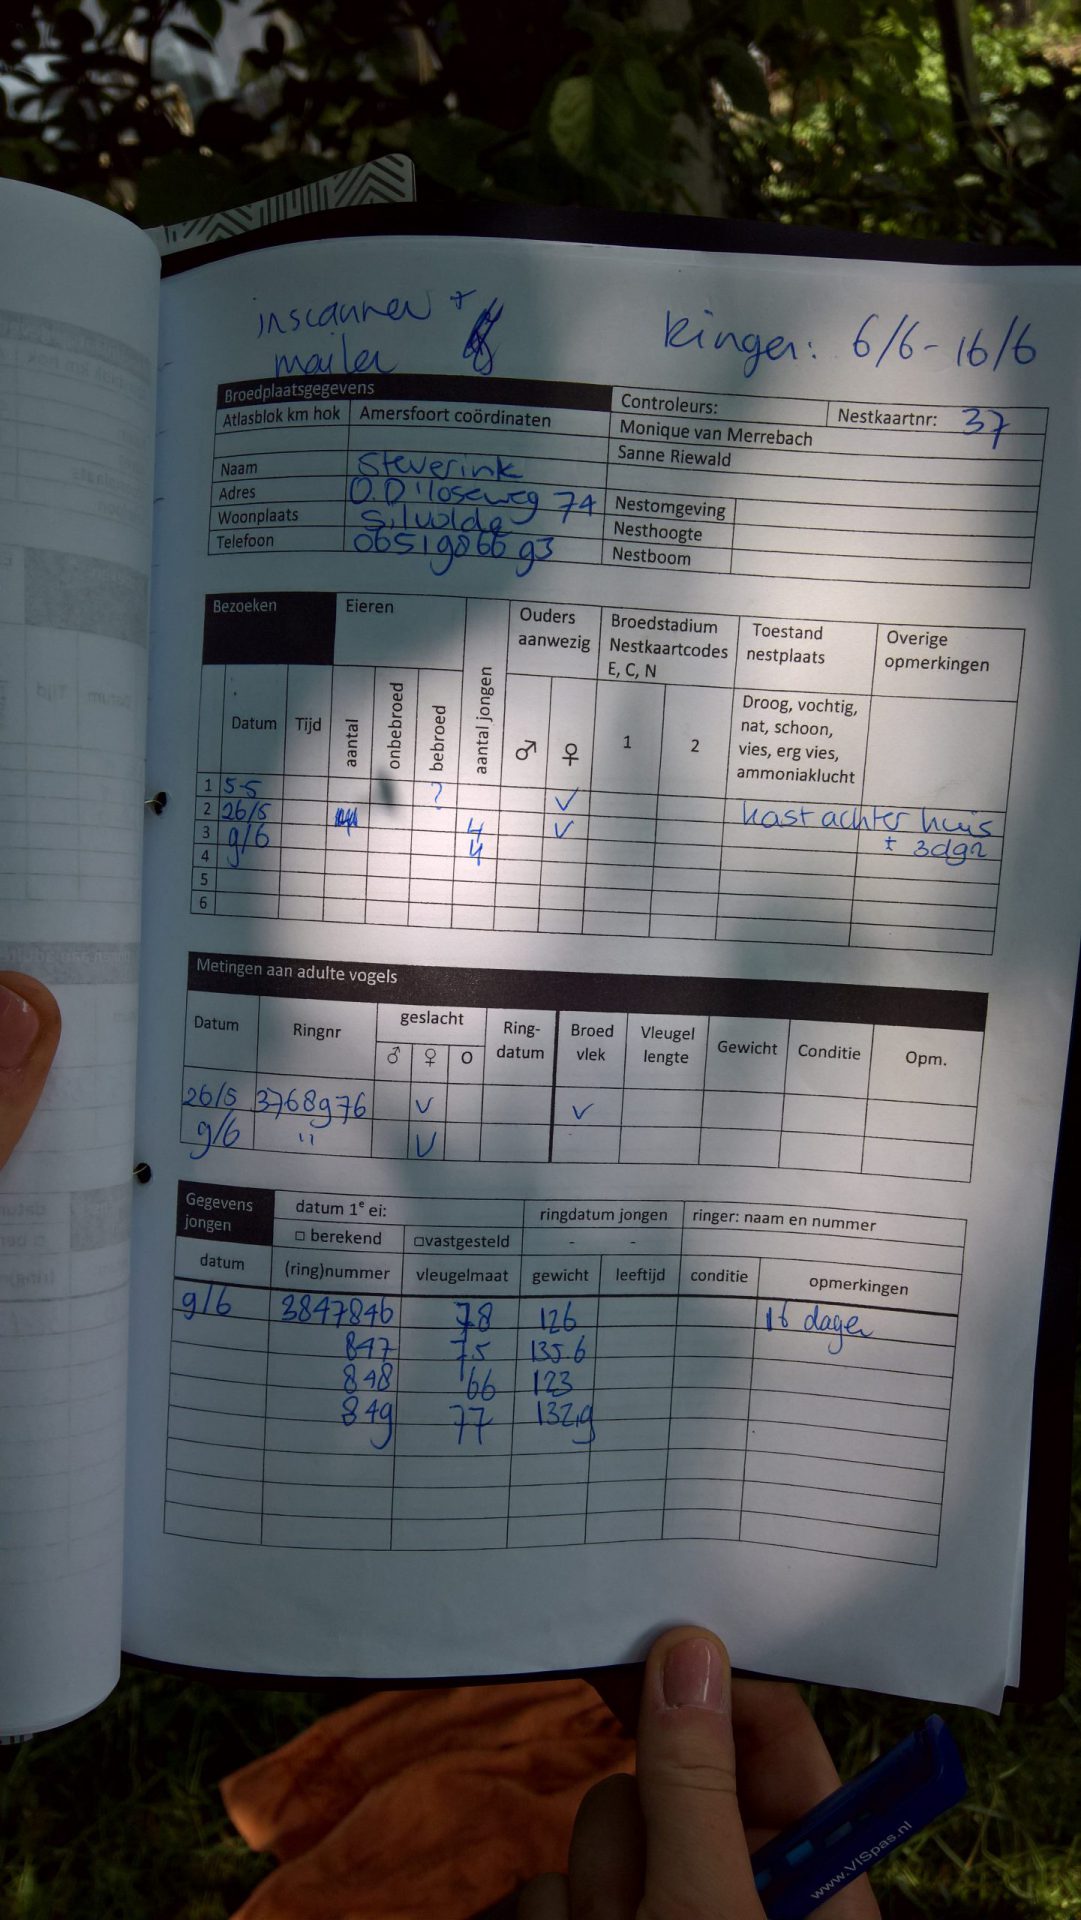 inscannen +
mailen
Ringen: 6/6-16/6
Broedplaatsgegevens
Controleurs:
Nestkaartnr: 37
Atlasblok km hok
Amersfoort coördinaten
Monique van Merrebach
Sanne Riewald
Naam Steverink
Adres 74
Woonplaats Silvolde
Telefoon 0651986693
Nestomgeving
Nesthoogte
Nestboom
Bezoeken
Eieren
aantal jongen
Ouders aanwezig
Broedstadium
Nestkaartcodes
E, C, N
Toestand
nestplaats
Overige
opmerkingen
Datum
Tijd
aantal
onbebroed
bebroed
♂
♀
1
2
Droog, vochtig,
nat, schoon,
vies, erg vies,
ammoniaklucht
1 5-5 ? ✓
2 26/5 4 ✓ kast achter huis
3 9/6 4 ± 3dgn
4
5
6
Metingen aan adulte vogels
Datum
Ringnr
geslacht
♂ ♀ O
Ring-
datum
Broed
vlek
Vleugel
lengte
Gewicht
Conditie
Opm.
26/5 3768976 ✓ ✓
9/6 " ✓
Gegevens
jongen
datum 1e ei:
ringdatum jongen
ringer: naam en nummer
□ berekend
□vastgesteld
- -
datum
(ring)nummer
vleugelmaat
gewicht
leeftijd
conditie
opmerkingen
9/6 3847846 78 126 16 dagen
847 75 135.6
848 66 123
849 77 132,9
www.VISpas.nl